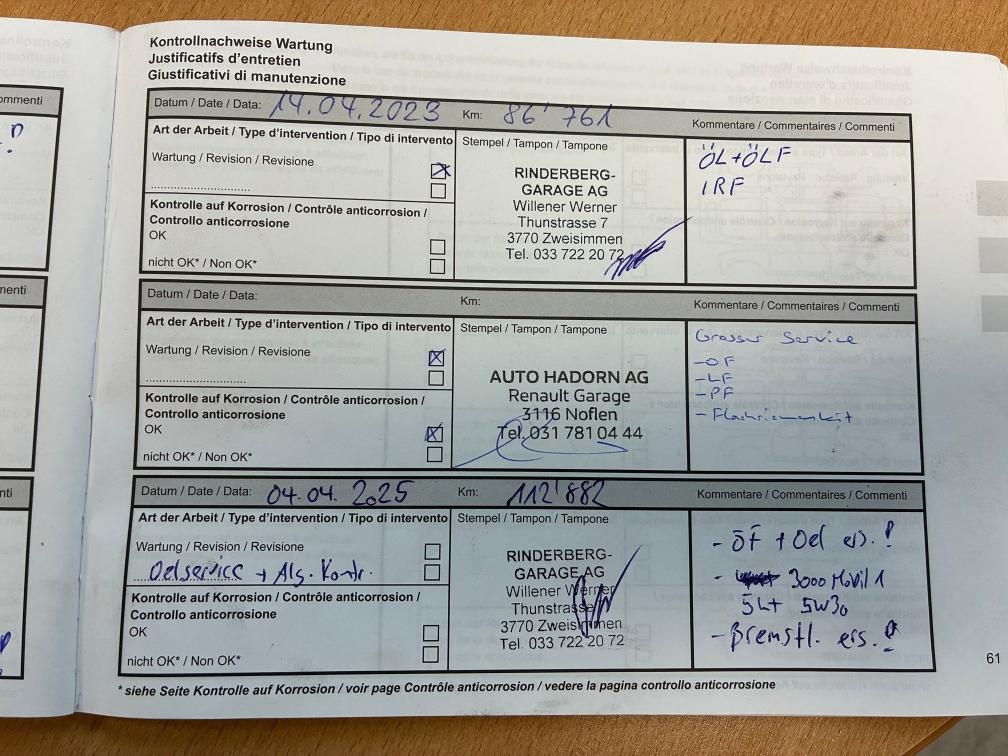 Kontrollnachweise Wartung
Justificatifs d'entretien
Giustificativi di manutenzione
ommenti
Datum / Date / Data: 14.04.2023 Km: 86'761 Kommentare / Commentaires / Commenti
Art der Arbeit / Type d'intervention / Tipo di intervento
Stempel / Tampon / Tampone
ÖL+ÖLF
IRF
Wartung / Revision / Revisione
RINDERBERG-
GARAGE AG
Willener Werner
Thunstrasse 7
3770 Zweisimmen
Tel. 033 722 20 72
Kontrolle auf Korrosion / Contrôle anticorrosion /
Controllo anticorrosione
OK
nicht OK* / Non OK*
menti
Datum / Date / Data: Km: Kommentare / Commentaires / Commenti
Art der Arbeit / Type d'intervention / Tipo di intervento
Stempel / Tampon / Tampone
Grosser Service
-OF
-LF
-PF
- Flachriemenkit
Wartung / Revision / Revisione
AUTO HADORN AG
Renault Garage
3116 Noflen
Tel. 031 781 04 44
Kontrolle auf Korrosion / Contrôle anticorrosion /
Controllo anticorrosione
OK
nicht OK* / Non OK*
nti
Datum / Date / Data: 04.04.2025 Km: 112'882 Kommentare / Commentaires / Commenti
Art der Arbeit / Type d'intervention / Tipo di intervento
Stempel / Tampon / Tampone
- ÖF + Oel ers. !
- 3000 Mobil 1
5Lt 5W30
- Bremsfl. ers. !
Wartung / Revision / Revisione
Oelservice + Alg. Kontr.
RINDERBERG-
GARAGE AG
Willener Werner
Thunstrasse
3770 Zweisimmen
Tel. 033 722 20 72
Kontrolle auf Korrosion / Contrôle anticorrosion /
Controllo anticorrosione
OK
nicht OK* / Non OK*
* siehe Seite Kontrolle auf Korrosion / voir page Contrôle anticorrosion / vedere la pagina controllo anticorrosione
61